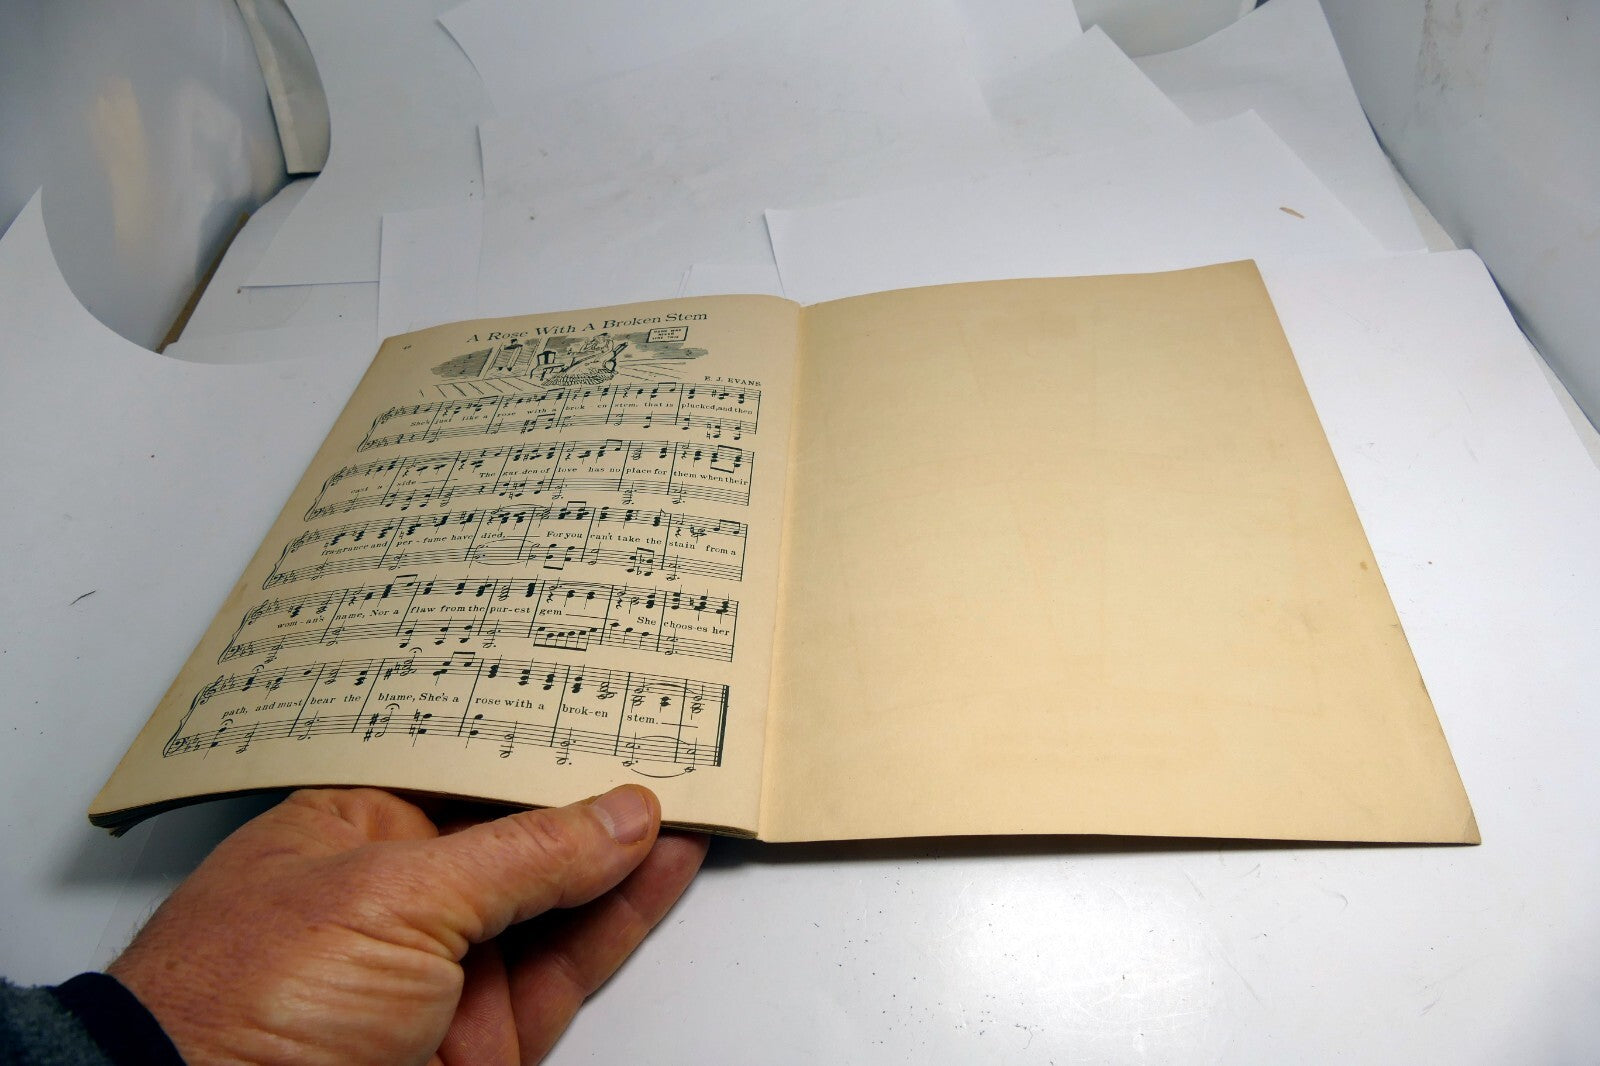 A Rose With A Broken Stem
E. J. EVANS
She's just like a rose with a brok - en stem, that is plucked, and then
cast a side The gar-den of love has no place for them when their
fra-grance and per - fume have died, For you can't take the stain from a
wom-an's name, Nor a flaw from the pur-est gem She choos-es her
path, and must bear the blame, She's a rose with a brok-en stem.